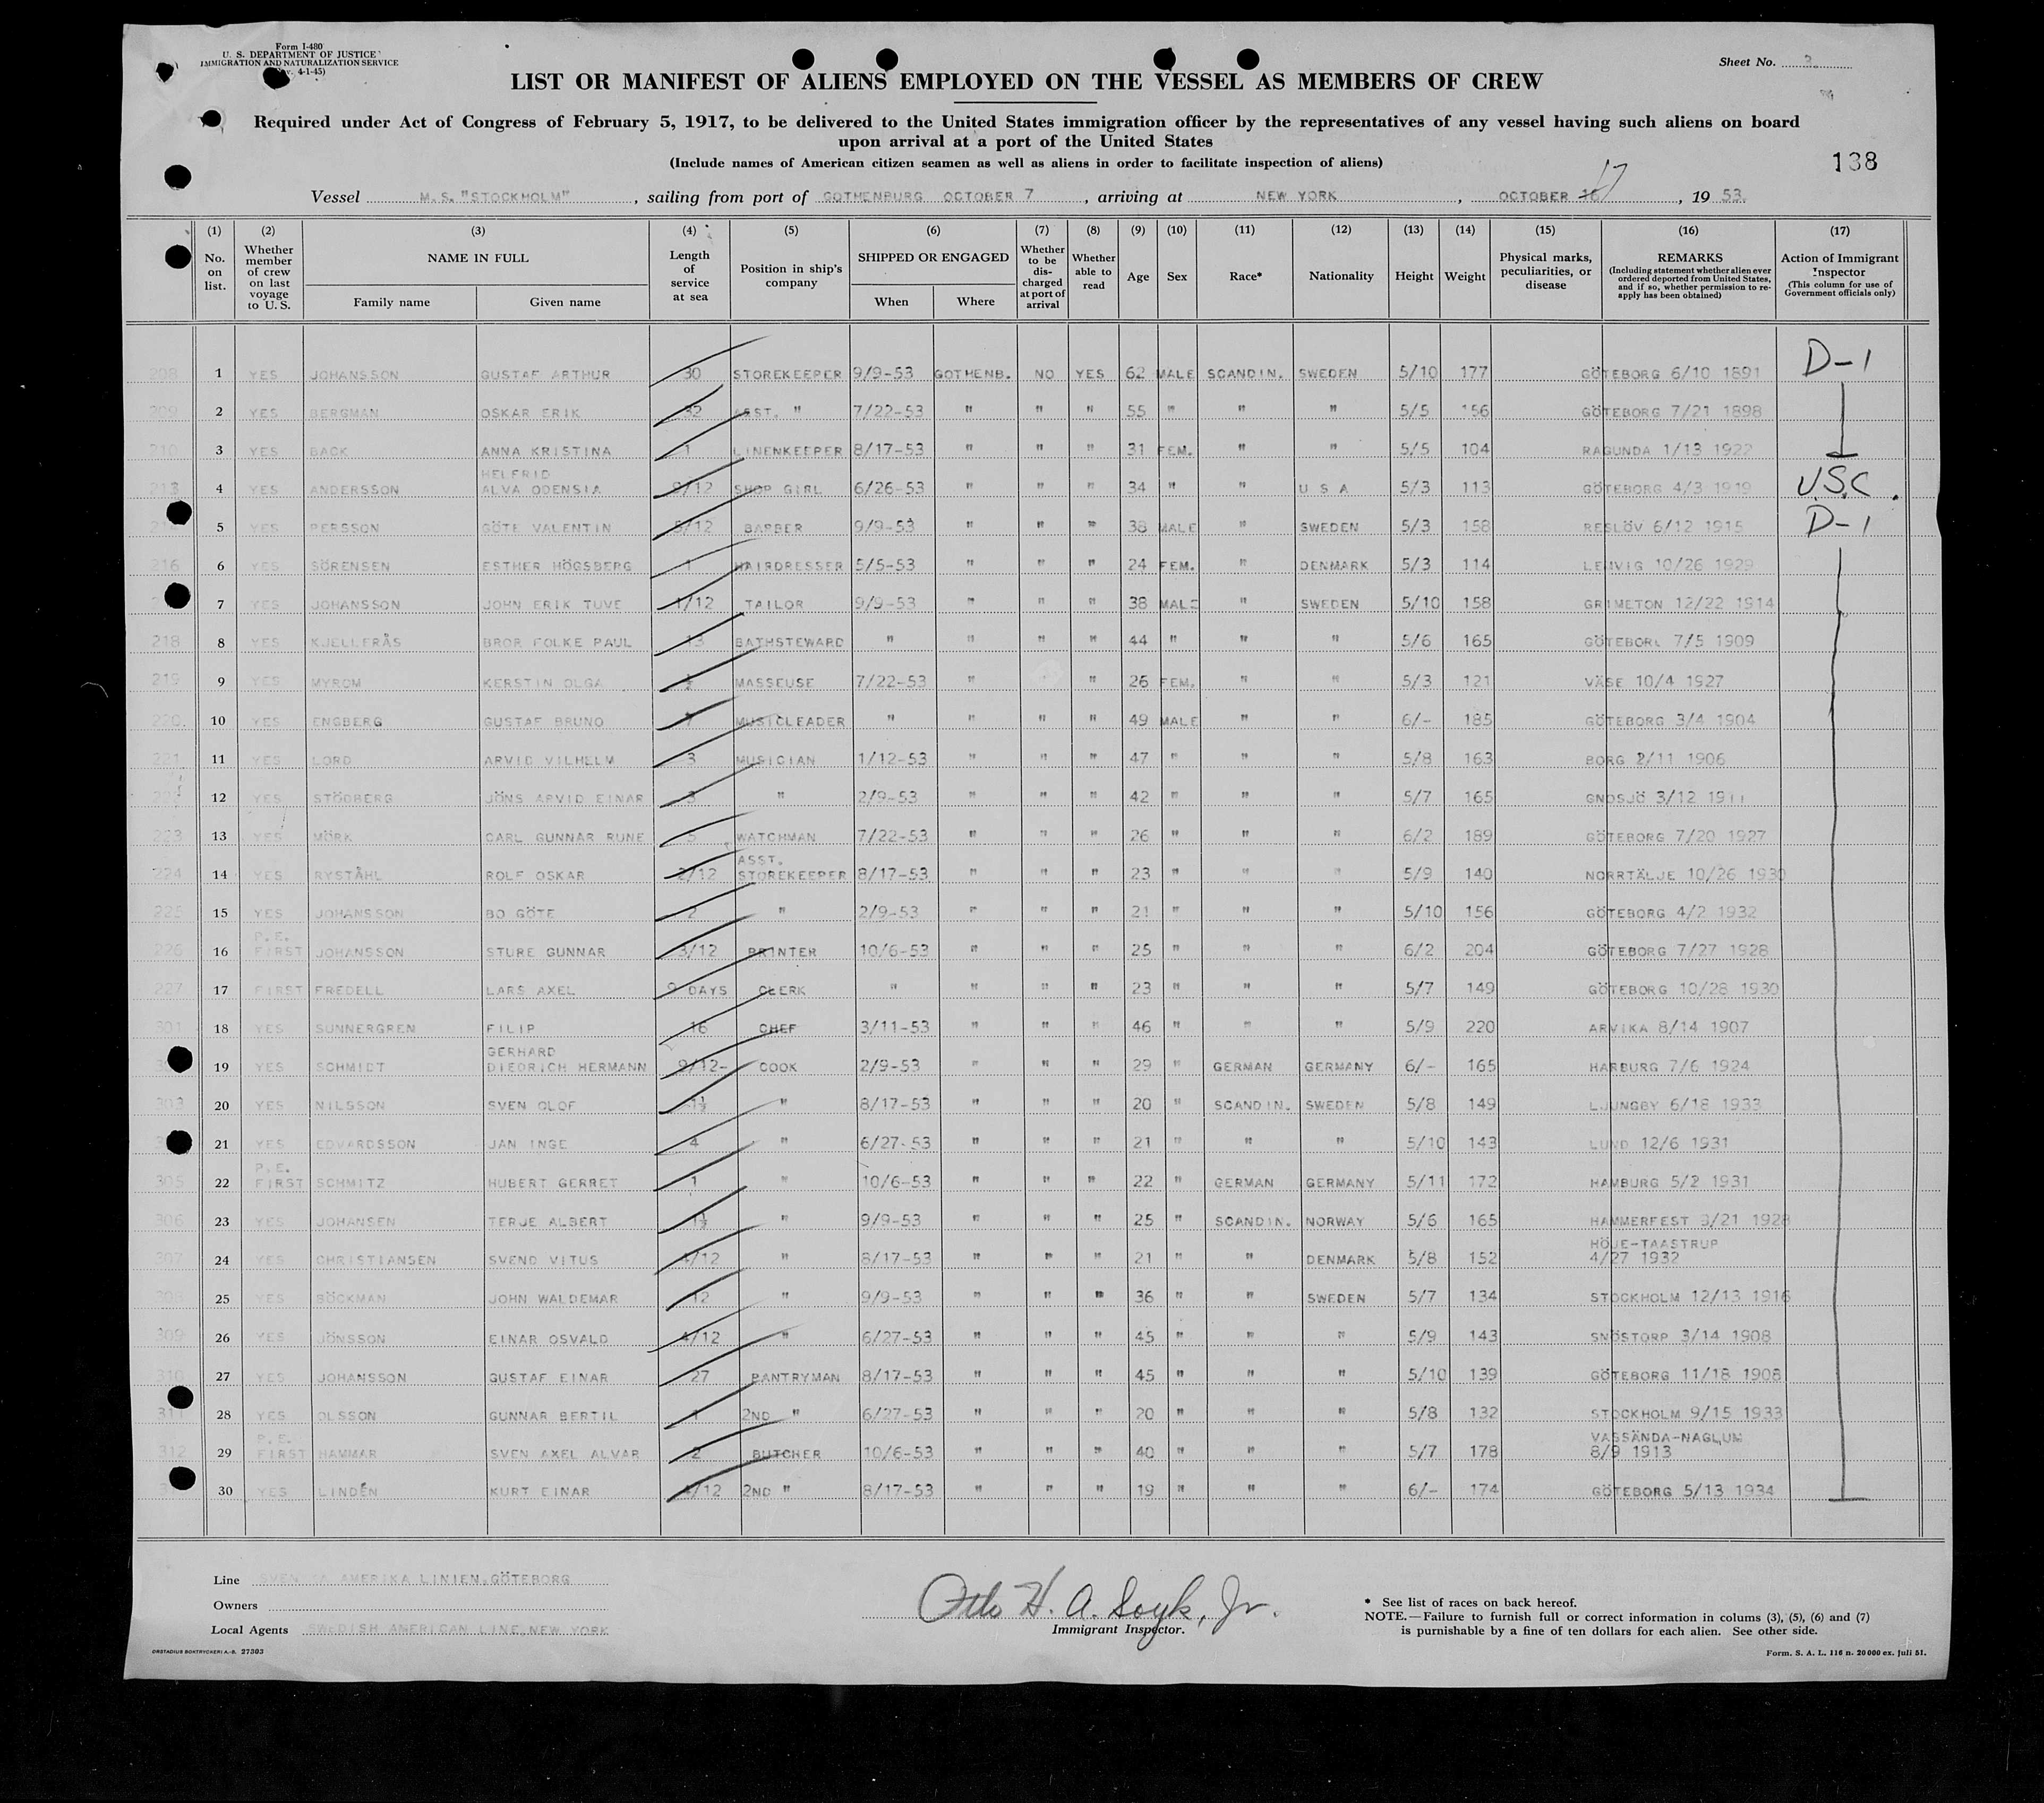 Form I-480
U. S. DEPARTMENT OF JUSTICE
IMMIGRATION AND NATURALIZATION SERVICE
4-1-45)
Sheet No.
LIST OR MANIFEST OF ALIENS EMPLOYED ON THE VESSEL AS MEMBERS OF CREW
Required under Act of Congress of February 5, 1917, to be delivered to the United States immigration officer by the representatives of any vessel having such aliens on board
upon arrival at a port of the United States
(Include names of American citizen seamen as well as aliens in order to facilitate inspection of aliens)
138
Vessel M.S. "STOCKHOLM", sailing from port of GOTHENBURG OCTOBER 7, arriving at NEW YORK, OCTOBER 17, 1953.
(1) (2) (3) (4) (5) (6) (7) (8) (9) (10) (11) (12) (13) (14) (15) (16) (17)
No. on list. Whether member of crew on last voyage to U. S. NAME IN FULL Family name Given name Length of service at sea Position in ship's company SHIPPED OR ENGAGED When Where Whether to be discharged at port of arrival Whether able to read Age Sex Race* Nationality Height Weight Physical marks, peculiarities, or disease REMARKS (Including statement whether alien ever ordered deported from United States, and if so, whether permission to re-apply has been obtained) Action of Immigrant Inspector (This column for use of Government officials only)
208 1 YES JOHANSSON GUSTAF ARTHUR 30 STOREKEEPER 9/9-53 GOTHENB. NO YES 62 MALE SCANDIN. SWEDEN 5/10 177 GÖTEBORG 6/10 1891 D-1
209 2 YES BERGMAN OSKAR ERIK 32 ASST. " 7/22-53 " " " 55 " " " 5/5 156 GÖTEBORG 7/21 1898
210 3 YES BACK ANNA KRISTINA 1 LINENKEEPER 8/17-53 " " " 31 FEM. " " 5/5 104 RAGUNDA 1/13 1922
HELFRID
213 4 YES ANDERSSON ALVA ODENSIA 9/12 SHOP GIRL 6/26-53 " " " 34 " " U S A 5/3 113 GÖTEBORG 4/3 1919 U.S.C.
5 YES PERSSON GÖTE VALENTIN 5/12 BARBER 9/9-53 " " " 38 MALE " SWEDEN 5/3 158 RESLÖV 6/12 1915 D-1
216 6 YES SÖRENSEN ESTHER HÖGSBERG 1 HAIRDRESSER 5/5-53 " " " 24 FEM. " DENMARK 5/3 114 LEMVIG 10/26 1929
7 YES JOHANSSON JOHN ERIK TUVE 1/12 TAILOR 9/9-53 " " " 38 MALE " SWEDEN 5/10 158 GRIMETON 12/22 1914
218 8 YES KJELLERÅS BROR FOLKE PAUL 13 BATHSTEWARD " " " " 44 " " " 5/6 165 GÖTEBORG 7/5 1909
219 9 YES MYROM KERSTIN OLGA ½ MASSEUSE 7/22-53 " " 26 FEM. " " 5/3 121 VÄSE 10/4 1927
220 10 YES ENGBERG GUSTAF BRUNO 7 MUSICLEADER " " " " 49 MALE " " 6/- 185 GÖTEBORG 3/4 1904
221 11 YES LORD ARVID VILHELM 3 MUSICIAN 1/12-53 " " " 47 " " " 5/8 163 BORG 2/11 1906
12 YES STÖDBERG JÖNS ARVID EINAR 3 " 2/9-53 " " " 42 " " " 5/7 165 GNOSJÖ 3/12 1911
223 13 YES MÖRK CARL GUNNAR RUNE 5 WATCHMAN 7/22-53 " " " 26 " " " 6/2 189 GÖTEBORG 7/20 1927
ASST.
224 14 YES RYSTÅHL ROLF OSKAR 2/12 STOREKEEPER 8/17-53 " " " 23 " " " 5/9 140 NORRTÄLJE 10/26 1930
225 15 YES JOHANSSON BO GÖTE 2 " 2/9-53 " " " 21 " " " 5/10 156 GÖTEBORG 4/2 1932
P.E.
226 16 FIRST JOHANSSON STURE GUNNAR 3/12 PRINTER 10/6-53 " " " 25 " " " 6/2 204 GÖTEBORG 7/27 1928
227 17 FIRST FREDELL LARS AXEL 9 DAYS CLERK " " " " 23 " " " 5/7 149 GÖTEBORG 10/28 1930
301 18 YES SUNNERGREN FILIP 16 CHEF 3/11-53 " " " 46 " " " 5/9 220 ARVIKA 8/14 1907
GERHARD
19 YES SCHMIDT DIEDRICH HERMANN 9/12 COOK 2/9-53 " " " 29 " GERMAN GERMANY 6/- 165 HARBURG 7/6 1924
303 20 YES NILSSON SVEN OLOF 1½ " 8/17-53 " " " 20 " SCANDIN. SWEDEN 5/8 149 LJUNGBY 6/18 1933
21 YES EDVARDSSON JAN INGE 4 " 6/27-53 " " " 21 " " " 5/10 143 LUND 12/6 1931
P.E.
305 22 FIRST SCHMITZ HUBERT GERRET 1 " 10/6-53 " " " 22 " GERMAN GERMANY 5/11 172 HAMBURG 5/2 1931
306 23 YES JOHANSEN TERJE ALBERT 1½ " 9/9-53 " " " 25 " SCANDIN. NORWAY 5/6 165 HAMMERFEST 3/21 1928
HÖJE-TAASTRUP
307 24 YES CHRISTIANSEN SVEND VITUS 4/12 " 8/17-53 " " " 21 " " DENMARK 5/8 152 4/27 1932
308 25 YES BÖCKMAN JOHN WALDEMAR 12 " 9/9-53 " " " 36 " " SWEDEN 5/7 134 STOCKHOLM 12/13 1916
309 26 YES JÖNSSON EINAR OSVALD 4/12 " 6/27-53 " " " 45 " " " 5/9 143 SNÖSTORP 3/14 1908
310 27 YES JOHANSSON GUSTAF EINAR 27 PANTRYMAN 8/17-53 " " " 45 " " " 5/10 139 GÖTEBORG 11/18 1908
311 28 YES OLSSON GUNNAR BERTIL 1 2ND " 6/27-53 " " " 20 " " " 5/8 132 STOCKHOLM 9/15 1933
P.E. VASSÄNDA-NAGLUM
312 29 FIRST HAMMAR SVEN AXEL ALVAR 2 BUTCHER 10/6-53 " " " 40 " " " 5/7 178 8/9 1913
30 YES LINDÉN KURT EINAR 4/12 2ND " 8/17-53 " " " 19 " " " 6/- 174 GÖTEBORG 5/13 1934
Line SVENSKA AMERIKA LINIEN, GÖTEBORG
Owners
Local Agents SWEDISH AMERICAN LINE, NEW YORK
Otto H. A. Soyk, Jr.
Immigrant Inspector.
* See list of races on back hereof.
NOTE.—Failure to furnish full or correct information in colums (3), (5), (6) and (7)
is punishable by a fine of ten dollars for each alien. See other side.
ORSTADIUS BOKTRYCKERI A.-B. 27303
Form. S. A. L. 116 n. 20000 ex. Juli 51.